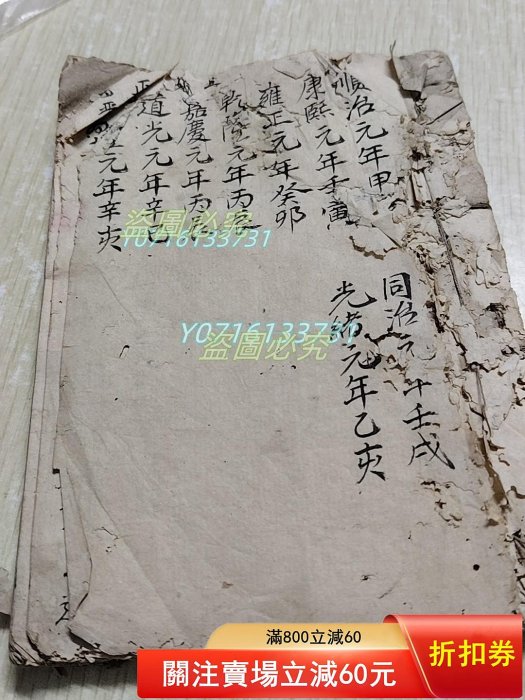 順治元年甲
康熙元年壬寅
雍正元年癸卯
乾隆元年丙辰
嘉慶元年丙
道光元年辛巳
元年辛亥
同治元年壬戌
光緒元年乙亥
盜圖必究
Y0716133731
Y0716133731
盜圖必究
滿800立減60
關注賣場立減60元
折扣券